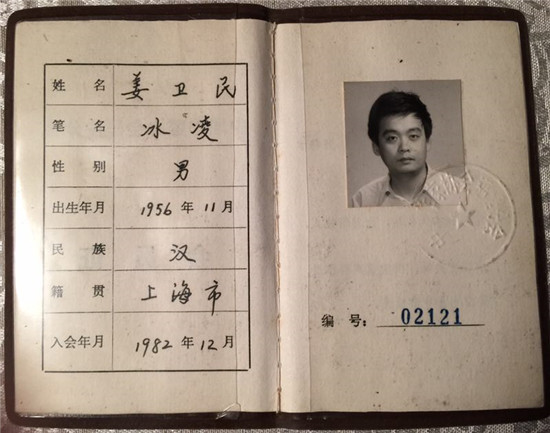 姓 名 姜卫民
笔 名 冰凌
性 别 男
出生年月 1956 年 11 月
民 族 汉
籍 贯 上海市
入会年月 1982 年 12 月
编 号: 02121